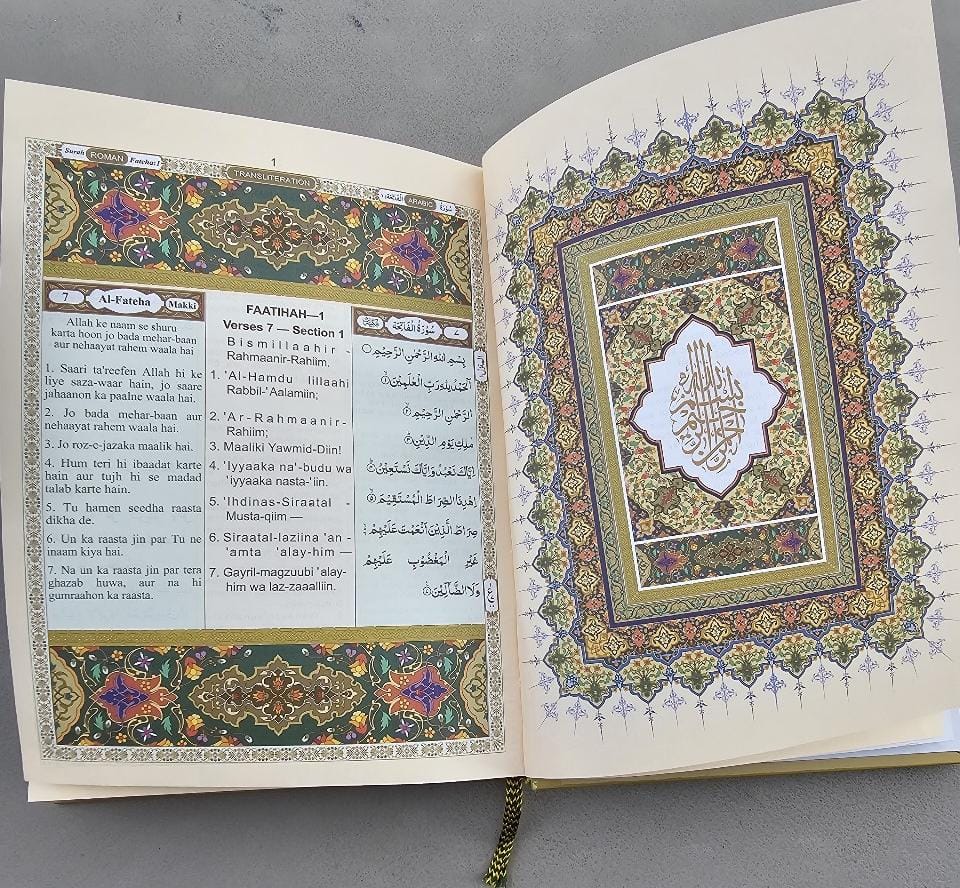 Surah ROMAN Fateha:1
1
TRANSLITERATION
ARABIC
7 Al-Fateha Makki
Allah ke naam se shuru
karta hoon jo bada mehar-baan
aur nehaayat rahem waala hai
1. Saari ta'reefen Allah hi ke
liye saza-waar hain, jo saare
jahaanon ka paalne waala hai.
2. Jo bada mehar-baan aur
nehaayat rahem waala hai.
3. Jo roz-e-jazaka maalik hai.
4. Hum teri hi ibaadat karte
hain aur tujh hi se madad
talab karte hain.
5. Tu hamen seedha raasta
dikha de.
6. Un ka raasta jin par Tu ne
inaam kiya hai.
7. Na un ka raasta jin par tera
ghazab huwa, aur na hi
gumraahon ka raasta.
FAATIHAH—1
Verses 7 — Section 1
Bismillaahir -
Rahmaanir-Rahiim.
1. 'Al-Hamdu lillaahi
Rabbil-'Aalamiin;
2. 'Ar-Rahmaanir-
Rahiim;
3. Maaliki Yawmid-Diin!
4. 'Iyyaaka na'-budu wa
'iyyaaka nasta-'iin.
5. 'Ihdinas-Siraatal -
Musta-qiim —
6. Siraatal-laziina 'an -
'amta 'alay-him —
7. Gayril-magzuubi 'alay-
him wa laz-zaaalliin.
سُوْرَةُ الْفَاتِحَةِ ٧
بِسْمِ اللهِ الرَّحْمٰنِ الرَّحِيْمِ
اَلْحَمْدُ لِلّٰهِ رَبِّ الْعٰلَمِيْنَ ۝١
الرَّحْمٰنِ الرَّحِيْمِ ۝٢
مٰلِكِ يَوْمِ الدِّيْنِ ۝٣
اِيَّاكَ نَعْبُدُ وَاِيَّاكَ نَسْتَعِيْنُ ۝٤
اِهْدِنَا الصِّرَاطَ الْمُسْتَقِيْمَ ۝٥
صِرَاطَ الَّذِيْنَ اَنْعَمْتَ عَلَيْهِمْ
غَيْرِ الْمَغْضُوْبِ عَلَيْهِمْ
وَلَا الضَّآلِّيْنَ
بسم الله الرحمن الرحيم